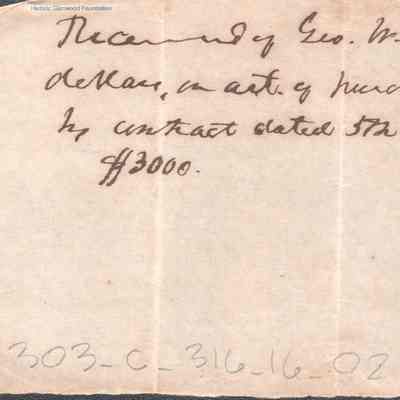 Historic Glenwood Foundation
Received of Geo. W.
dollars, on act. of purc
by contract dated 5th
$3000.
303-C-316-16-02